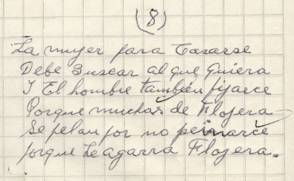 (8)
La mujer para Casarse
Debe Buscar al que Quiera
Y El hombre también fijarce
Porque muchas de Flojera
Se pelan por no peinarce
porque Le agarra Flojera.